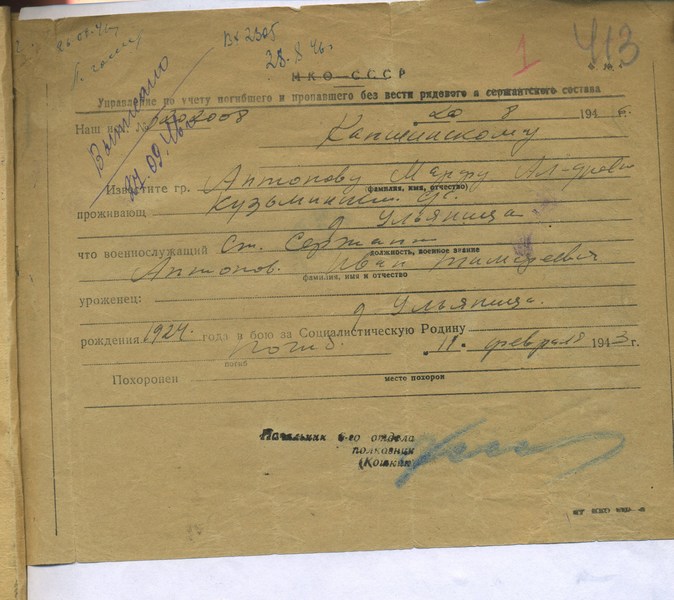 20.08.46г.
Вх 2305
28.8.46г.
1
413
НКО-СССР
Управление по учету погибшего и пропавшего без вести рядового и сержантского состава
Наш №
20 8 1946г.
Выписано
27.09.46г.
Капшинскому
Известите гр. Антонову Марфу Ал-дровн
(фамилия, имя, отчество)
проживающ Кузьминский с/с.
д Ульяница
что военнослужащий Ст. Сержант
должность, военное звание
Антонов. Иван Тимофеевич
фамилия, имя и отчество
уроженец: д Ульяница.
рождения 1924. года в бою за Социалистическую Родину
погиб. 11. февраля 1943г.
погиб
Похоронен
место похорон
Начальник 6-го отдела
полковник
(Кошкин)